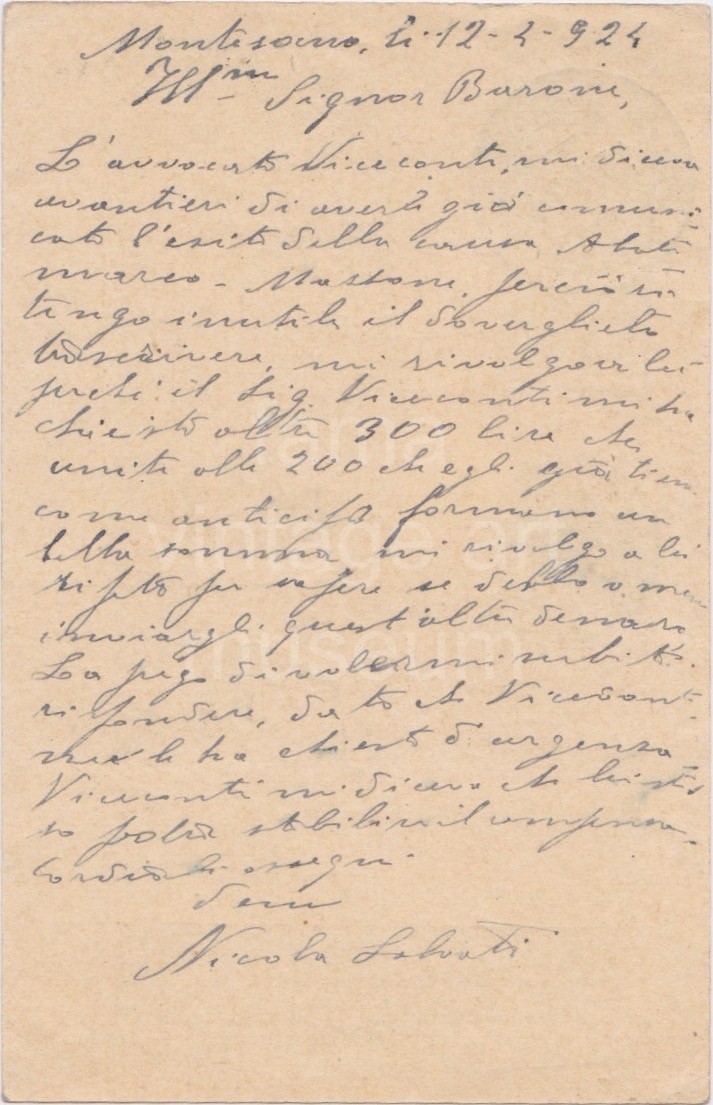 Montesano, li 12-4-924
Illm Signor Barone,
L'avvocato Viceconti, mi diceva
avantieri di averle già comuni
cato l'esito della causa Abate
marco - Mastone, perciò ri
tengo inutile il
mi rivolgo a lei
perché il Sig. Viceconti mi ha
chiesto altre 300 lire che
unite alle 200 che egli già tiene
come anticipo formano una
bella somma mi rivolgo a lei
ripeto per sapere se debbo o meno
inviargli quest'altro denaro
La prego di volermi subito
rispondere, dato che Viceconti
me le ha chiesto d'urgenza
Viceconti mi diceva che lei stes
so potrà stabilire il compenso.
Cordiali ossequi
Nicola Salvati
vintage art
museum